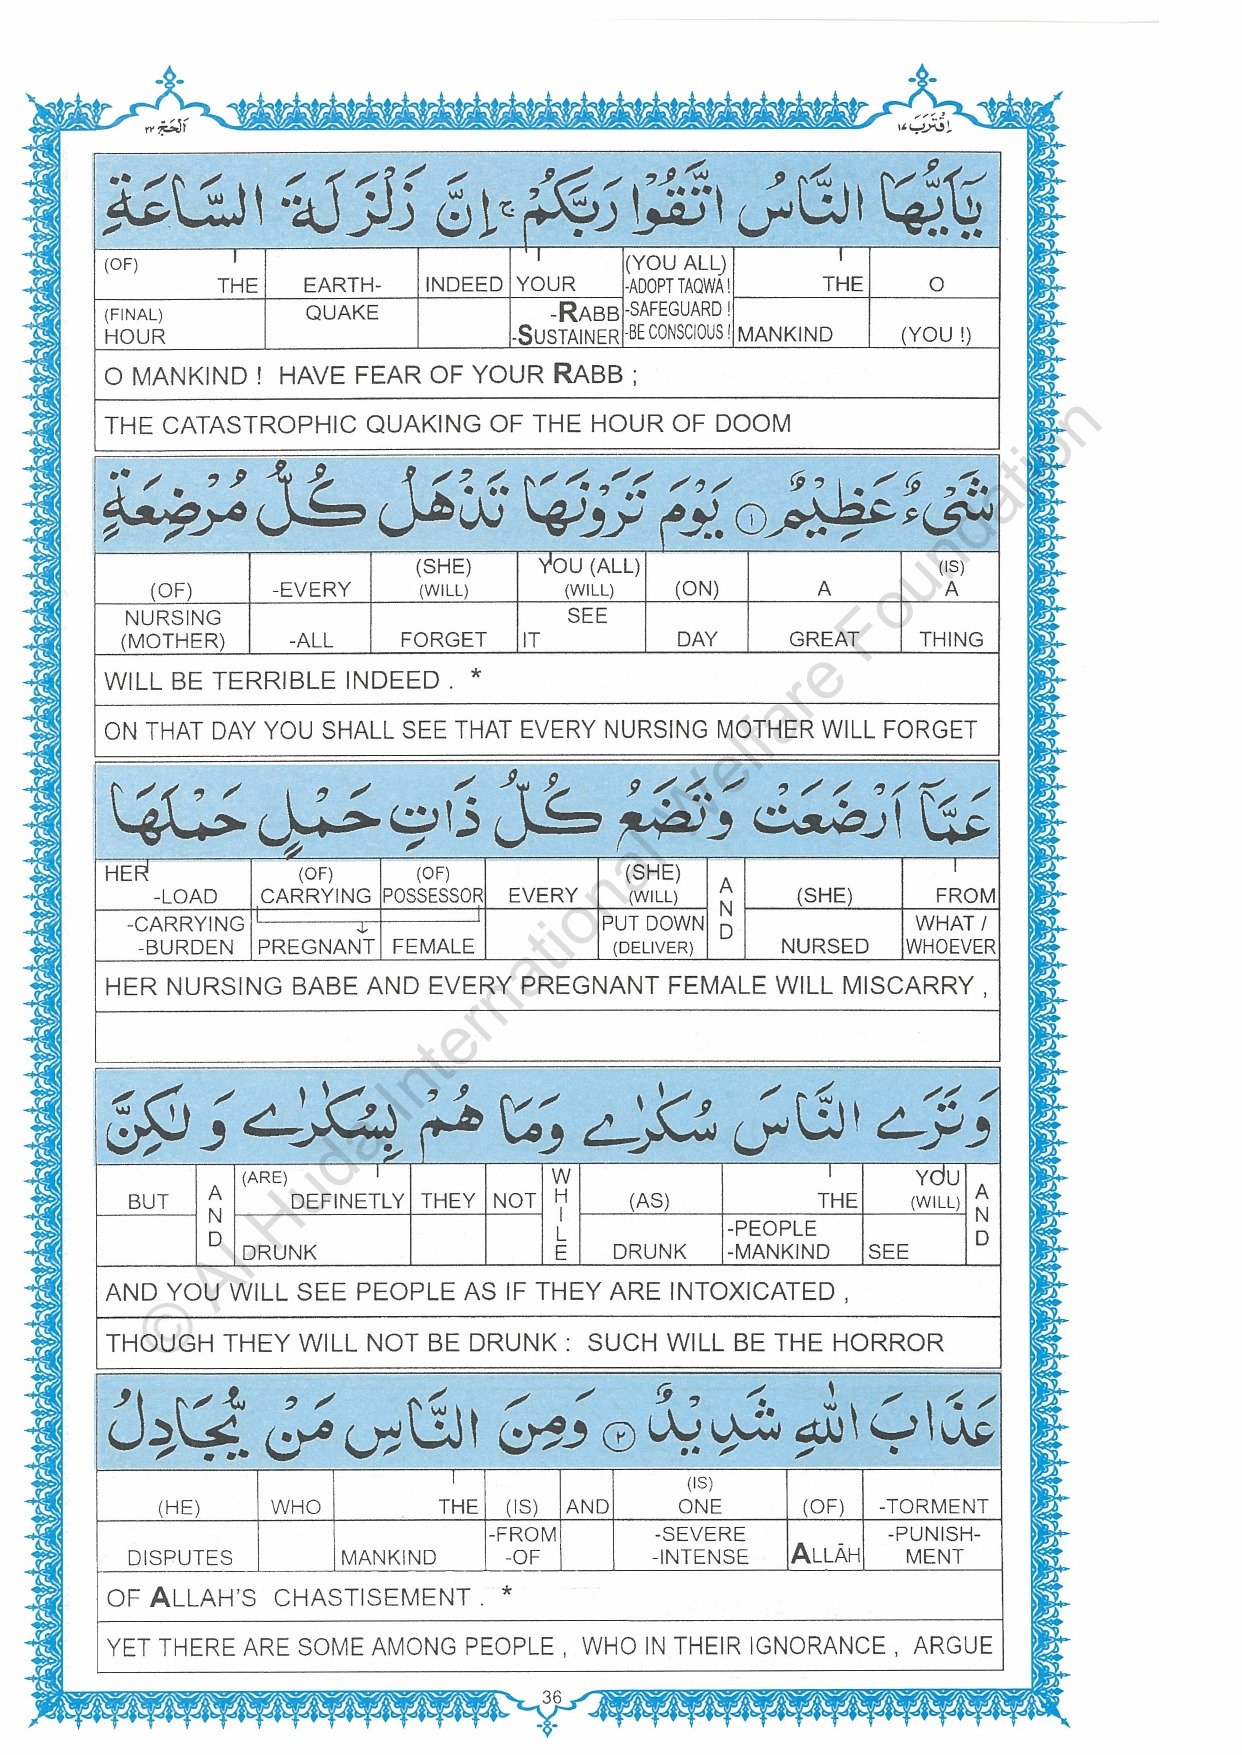 اَلْحَجّ ٢٢
اِقْتَرَبَ ١٧
يٰۤاَيُّهَا النَّاسُ اتَّقُوْا رَبَّكُمْ ۚ اِنَّ زَلْزَلَةَ السَّاعَةِ
(OF) THE EARTH- INDEED YOUR (YOU ALL) -ADOPT TAQWA! THE O
(FINAL) HOUR QUAKE -RABB -SUSTAINER -SAFEGUARD ! -BE CONSCIOUS ! MANKIND (YOU !)
O MANKIND ! HAVE FEAR OF YOUR RABB ;
THE CATASTROPHIC QUAKING OF THE HOUR OF DOOM
شَىْءٌ عَظِيْمٌ ١ يَوْمَ تَرَوْنَهَا تَذْهَلُ كُلُّ مُرْضِعَةٍ
(OF) -EVERY (SHE) (WILL) YOU (ALL) (WILL) (ON) A (IS) A
NURSING (MOTHER) -ALL FORGET SEE IT DAY GREAT THING
WILL BE TERRIBLE INDEED . *
ON THAT DAY YOU SHALL SEE THAT EVERY NURSING MOTHER WILL FORGET
عَمَّاۤ اَرْضَعَتْ وَ تَضَعُ كُلُّ ذَاتِ حَمْلٍ حَمْلَهَا
HER -LOAD (OF) CARRYING (OF) POSSESSOR EVERY (SHE) (WILL) AND (SHE) FROM
-CARRYING -BURDEN PREGNANT FEMALE PUT DOWN (DELIVER) NURSED WHAT / WHOEVER
HER NURSING BABE AND EVERY PREGNANT FEMALE WILL MISCARRY ,
وَ تَرَے النَّاسَ سُكٰرٰے وَمَا هُمْ بِسُكٰرٰے وَ لٰكِنَّ
BUT AND (ARE) DEFINETLY THEY NOT WHILE (AS) THE YOU (WILL) AND
DRUNK DRUNK -PEOPLE -MANKIND SEE
AND YOU WILL SEE PEOPLE AS IF THEY ARE INTOXICATED ,
THOUGH THEY WILL NOT BE DRUNK : SUCH WILL BE THE HORROR
عَذَابَ اللّٰهِ شَدِيْدٌ ٢ وَمِنَ النَّاسِ مَنْ يُّجَادِلُ
(HE) WHO THE (IS) AND (IS) ONE (OF) -TORMENT
DISPUTES MANKIND -FROM -OF -SEVERE -INTENSE ALLĀH -PUNISH- MENT
OF ALLAH'S CHASTISEMENT . *
YET THERE ARE SOME AMONG PEOPLE , WHO IN THEIR IGNORANCE , ARGUE
36
© Al Huda International Welfare Foundation